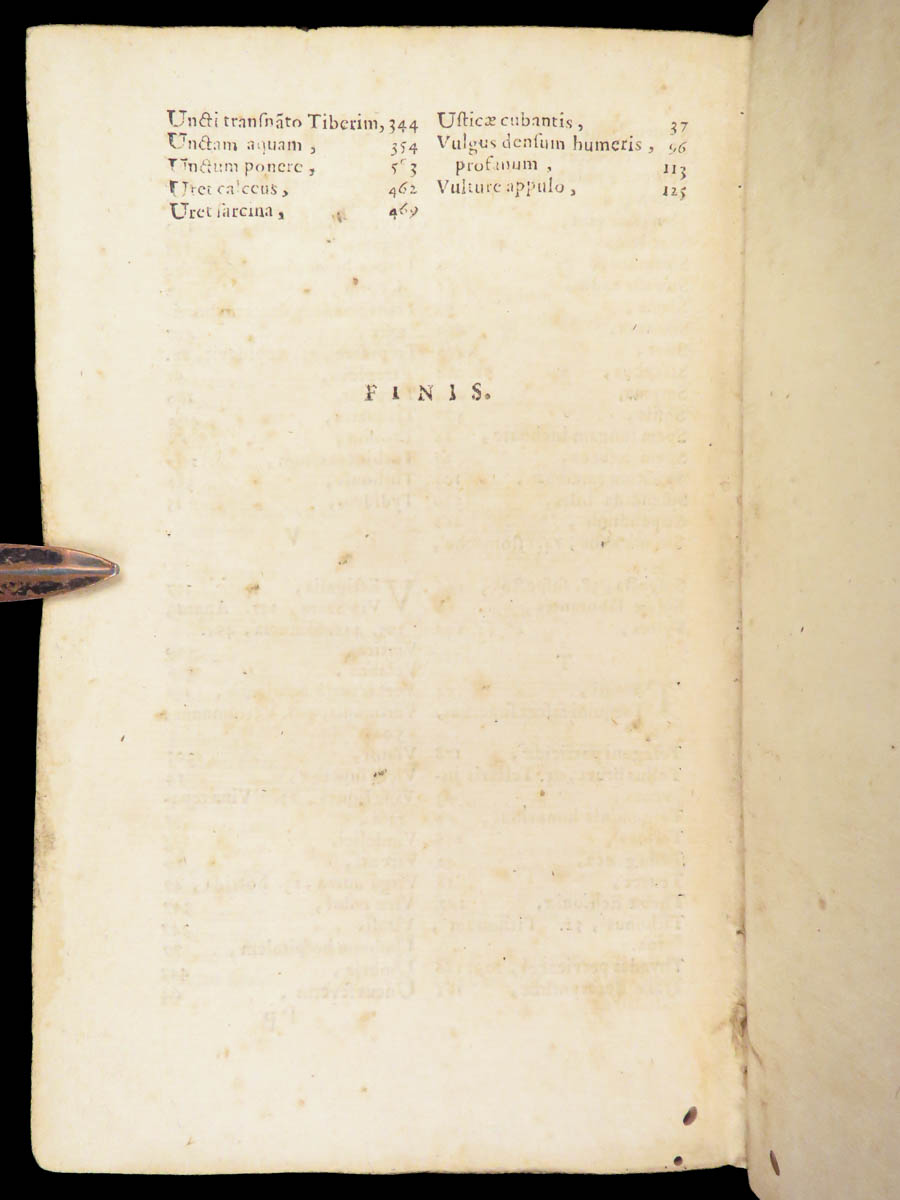 Uncti tranſnãto Tiberim, 344
Unctam aquam, 354
Unctum ponere,
Uret calceus, 462
Uret ſarcina, 469
Uſticæ cubantis, 37
Vulgus denſum humeris, 96
profanum, 113
Vulture appulo, 125
FINIS.